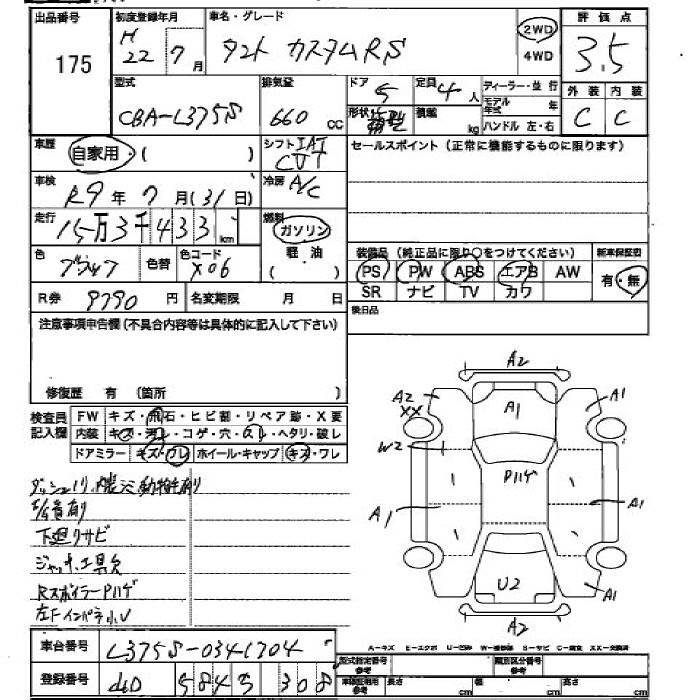 出品番号 初度登録年月 車名・グレード 2WD 4WD 評価点
175 H22年7月 タント カスタムRS 3.5
型式 排気量 ドア 定員 ディーラー・並行 外装 内装
CBA-L375S 660cc 5 4人 モデル年式 年 C C
形状 箱型 積載 kg ハンドル 左・右
車歴 自家用・( ) シフト IAT CVT セールスポイント(正常に機能するものに限ります)
車検 R9年7月(31日) 冷房 A/C
走行 15万3千433km 燃料 ガソリン 軽油
色 ブラック 色替 色コード X06 装備品(純正品に限り○をつけてください) 新車保証書
PS PW ABS エアB AW 有・無
SR ナビ TV カワ
R券 9790円 名変期限 月 日 後日品
注意事項申告欄(不具合内容等は具体的に記入して下さい)
修復歴 有 (箇所 )
検査員記入欄 FW キズ・飛石・ヒビ割・リペア跡・X要
内装 キズ・汚れ・コゲ・穴・スレ・ヘタリ・破レ
ドアミラー キズ・ワレ ホイール・キャップ キズ・ワレ
A2
A2 XX A1 A1
W2 Pハゲ
A1 A1
U2 A1
A2
下廻りサビ
ジャッキ、工具欠
RスポイラーPハゲ
A-キズ E-エクボ U-凹み W-補修跡 S-サビ C-腐食 XX-交換済
車台番号 L375S-0341704
型式指定番号 参考 類別区分番号 参考
登録番号 584 308
長さ cm 幅 cm 高さ cm